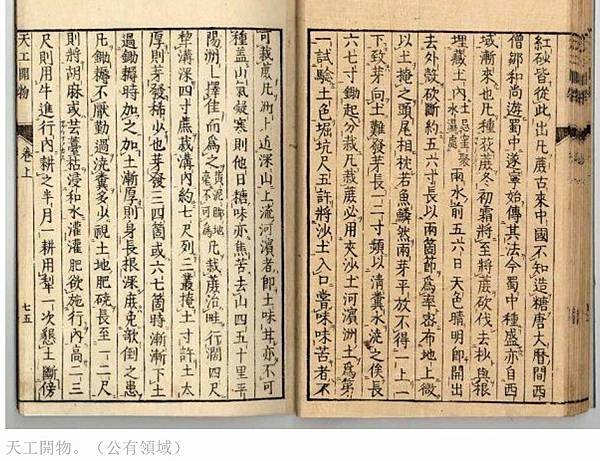 紅砂皆從此出凡蔗古來中國不知造糖唐大曆間西
僧鄒和尚遊蜀中遂寧始傳其法今蜀中種盛亦自西
域漸來也凡種荻蔗冬初霜將至將蔗砍伐去杪與根
埋藏土內土忌窪聚水濕處雨水前五六日天色晴明即開出
去外殼砍斷約五六寸長以兩箇節為率密布地上微
以土掩之頭尾相枕若魚鱗然兩芽平放不得一上一
下致芽向土難發芽長一二寸頻以清糞水澆之俟長
六七寸鋤起分栽凡栽蔗必用夾沙土河濱洲土為第
一試驗土色堀坑尺五許將沙土入口嘗味味苦者不
可栽蔗凡洲土近深山上流河濱者即土味甘亦不可
種蓋山氣凝寒則他日糖味亦焦苦去山四五十里平
陽洲土擇佳而為之黃泥腳地毫不可為凡栽蔗治畦行濶四尺
犁溝深四寸蔗栽溝內約七尺列三叢掩土寸許土太
厚則芽發稀少也芽發三四箇或六七箇時漸漸下土
過鋤耨時加之加土漸厚則身長根深蔗免欹倒之患
凡鋤耨不厭勤過澆糞多少視土地肥磽長至一二尺
則將胡麻或芸薹枯浸和水灌灌肥欲施行內高二三
尺則用牛進行內耕之半月一耕用犁一次懇土斷傍
天工開物 卷上 七五
天工開物。（公有領域）